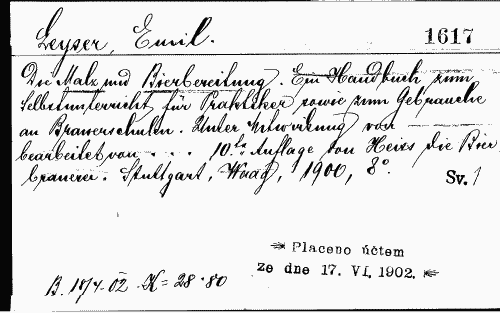 Leyser, Emil.
1617
Die Malz und Bierbereitung. Ein Handbuch zum
Selbstunterricht für Praktiker sowie zum Gebrauche
an Brauerschulen. Unter Mitwirkung von
bearbeitet von . . . 10.te Auflage von Heiss die Bier
brauerei. Stuttgart, Waag, 1900, 8°.
Sv. 1
Placeno účtem
ze dne 17. VI. 1902.
B. 1874-02 K = 28·80